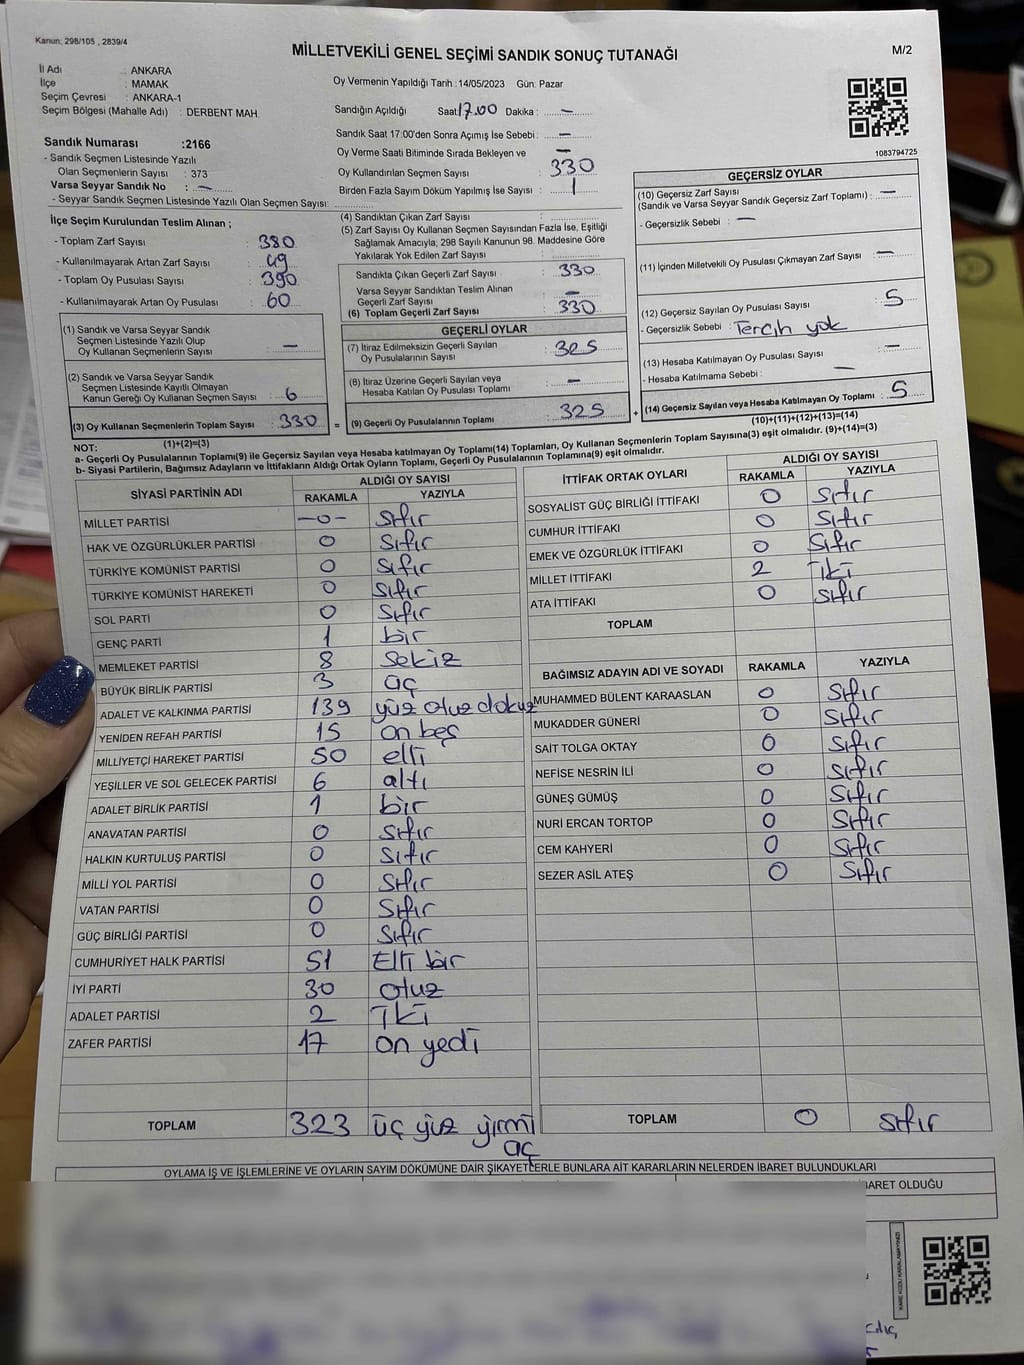 Kanun: 298/105 , 2839/4
MİLLETVEKİLİ GENEL SEÇİMİ SANDIK SONUÇ TUTANAĞI
M/2
İl Adı : ANKARA
İlçe : MAMAK
Seçim Çevresi : ANKARA-1
Seçim Bölgesi (Mahalle Adı) : DERBENT MAH.
Sandık Numarası :2166
- Sandık Seçmen Listesinde Yazılı
Olan Seçmenlerin Sayısı : 373
Varsa Seyyar Sandık No : —
- Seyyar Sandık Seçmen Listesinde Yazılı Olan Seçmen Sayısı:
Oy Vermenin Yapıldığı Tarih : 14/05/2023 Gün: Pazar
Sandığın Açıldığı Saat 17.00 Dakika : —
Sandık Saat 17:00'den Sonra Açımış İse Sebebi : —
Oy Verme Saati Bitiminde Sırada Bekleyen ve —
Oy Kullandırılan Seçmen Sayısı : 330
Birden Fazla Sayım Döküm Yapılmış İse Sayısı : 1
1083794725
İlçe Seçim Kurulundan Teslim Alınan ;
- Toplam Zarf Sayısı : 380
- Kullanılmayarak Artan Zarf Sayısı : 49
- Toplam Oy Pusulası Sayısı : 390
- Kullanılmayarak Artan Oy Pusulası : 60
(1) Sandık ve Varsa Seyyar Sandık
Seçmen Listesinde Yazılı Olup
Oy Kullanan Seçmenlerin Sayısı : —
(2) Sandık ve Varsa Seyyar Sandık
Seçmen Listesinde Kayıtlı Olmayan
Kanun Gereği Oy Kullanan Seçmen Sayısı : 6
(3) Oy Kullanan Seçmenlerin Toplam Sayısı : 330
(1)+(2)=(3)
(4) Sandıktan Çıkan Zarf Sayısı :
(5) Zarf Sayısı Oy Kullanan Seçmen Sayısından Fazla İse, Eşitliği
Sağlamak Amacıyla; 298 Sayılı Kanunun 98. Maddesine Göre
Yakılarak Yok Edilen Zarf Sayısı :
Sandıkta Çıkan Geçerli Zarf Sayısı : 330
Varsa Seyyar Sandıktan Teslim Alınan
Geçerli Zarf Sayısı : —
(6) Toplam Geçerli Zarf Sayısı : 330
GEÇERLİ OYLAR
(7) İtiraz Edilmeksizin Geçerli Sayılan
Oy Pusulalarının Sayısı : 325
(8) İtiraz Üzerine Geçerli Sayılan veya
Hesaba Katılan Oy Pusulası Toplamı : —
= (9) Geçerli Oy Pusulalarının Toplamı : 325
GEÇERSİZ OYLAR
(10) Geçersiz Zarf Sayısı
(Sandık ve Varsa Seyyar Sandık Geçersiz Zarf Toplamı) : —
- Geçersizlik Sebebi : —
(11) İçinden Milletvekili Oy Pusulası Çıkmayan Zarf Sayısı : —
(12) Geçersiz Sayılan Oy Pusulası Sayısı : 5
- Geçersizlik Sebebi : Tercih yok
(13) Hesaba Katılmayan Oy Pusulası Sayısı : —
- Hesaba Katılmama Sebebi : —
+ (14) Geçersiz Sayılan veya Hesaba Katılmayan Oy Toplamı : 5
(10)+(11)+(12)+(13)=(14)
NOT:
a- Geçerli Oy Pusulasının Toplamı(9) ile Geçersiz Sayılan veya Hesaba katılmayan Oy Toplamı(14) Toplamları, Oy Kullanan Seçmenlerin Toplam Sayısına(3) eşit olmalıdır. (9)+(14)=(3)
b- Siyasi Partilerin, Bağımsız Adayların ve İttifakların Aldığı Ortak Oyların Toplamı, Geçerli Oy Pusulalarının Toplamına(9) eşit olmalıdır.
SİYASİ PARTİNİN ADI ALDIĞI OY SAYISI
RAKAMLA YAZIYLA
MİLLET PARTİSİ -0- sıfır
HAK VE ÖZGÜRLÜKLER PARTİSİ 0 sıfır
TÜRKİYE KOMÜNİST PARTİSİ 0 sıfır
TÜRKİYE KOMÜNİST HAREKETİ 0 sıfır
SOL PARTİ 0 sıfır
GENÇ PARTİ 1 bir
MEMLEKET PARTİSİ 8 sekiz
BÜYÜK BİRLİK PARTİSİ 3 üç
ADALET VE KALKINMA PARTİSİ 139 yüz otuz dokuz
YENİDEN REFAH PARTİSİ 15 on beş
MİLLİYETÇİ HAREKET PARTİSİ 50 elli
YEŞİLLER VE SOL GELECEK PARTİSİ 6 altı
ADALET BİRLİK PARTİSİ 1 bir
ANAVATAN PARTİSİ 0 sıfır
HALKIN KURTULUŞ PARTİSİ 0 sıfır
MİLLİ YOL PARTİSİ 0 sıfır
VATAN PARTİSİ 0 sıfır
GÜÇ BİRLİĞİ PARTİSİ 0 sıfır
CUMHURİYET HALK PARTİSİ 51 Elli bir
İYİ PARTİ 30 otuz
ADALET PARTİSİ 2 İki
ZAFER PARTİSİ 17 on yedi
TOPLAM 323 üç yüz yirmi
üç
İTTİFAK ORTAK OYLARI ALDIĞI OY SAYISI
RAKAMLA YAZIYLA
SOSYALİST GÜÇ BİRLİĞİ İTTİFAKI 0 sıfır
CUMHUR İTTİFAKI 0 sıfır
EMEK VE ÖZGÜRLÜK İTTİFAKI 0 sıfır
MİLLET İTTİFAKI 2 İki
ATA İTTİFAKI 0 sıfır
TOPLAM
BAĞIMSIZ ADAYIN ADI VE SOYADI RAKAMLA YAZIYLA
MUHAMMED BÜLENT KARAASLAN 0 sıfır
MUKADDER GÜNERİ 0 sıfır
SAİT TOLGA OKTAY 0 sıfır
NEFİSE NESRİN İLİ 0 sıfır
GÜNEŞ GÜMÜŞ 0 sıfır
NURİ ERCAN TORTOP 0 sıfır
CEM KAHYERİ 0 sıfır
SEZER ASİL ATEŞ 0 sıfır
TOPLAM 0 sıfır
OYLAMA İŞ VE İŞLEMLERİNE VE OYLARIN SAYIM DÖKÜMÜNE DAİR ŞİKAYETLERLE BUNLARA AİT KARARLARIN NELERDEN İBARET BULUNDUKLARI
BARET OLDUĞU